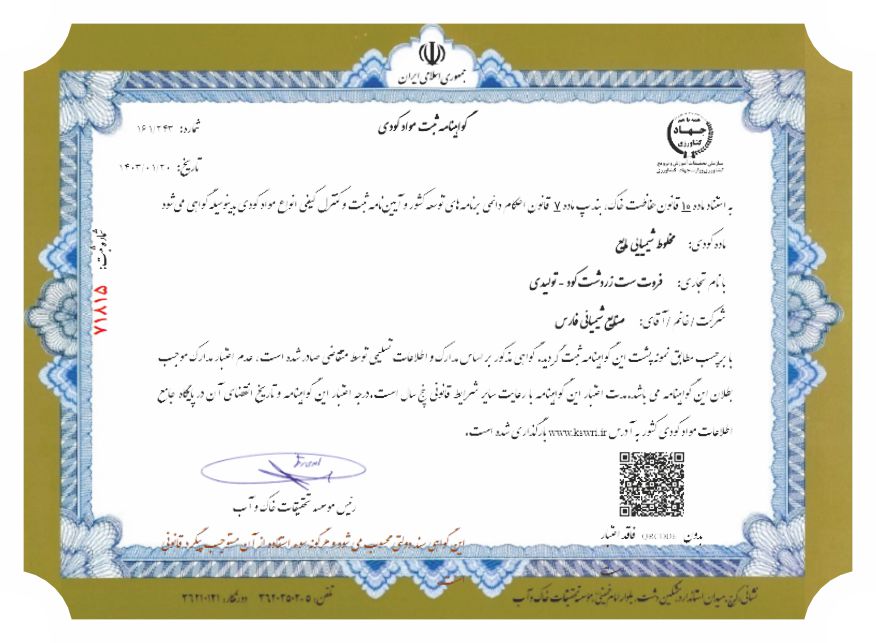 جمهوری اسلامی ایران
گواهینامه ثبت مواد کودی
شماره: ۱۶۱/۲۴۳
تاریخ: ۱۴۰۳/۰۱/۲۰
همه با هم
جهاد
کشاورزی
سازمان تحقیقات، آموزش و ترویج
کشاورزی وزارت جهاد کشاورزی
شماره ثبت: ۷۱۸۱۵
به استناد ماده ۱۵ قانون حفاظت خاک، بند پ ماده ۷ قانون احکام دائمی برنامه های توسعه کشور و آیین نامه ثبت و کنترل کیفی انواع مواد کودی بدینوسیله گواهی می شود
ماده کودی: مخلوط شیمیایی مایع
با نام تجاری: فروت ست زردشت کود - تولیدی
شرکت / خانم / آقای: صنایع شیمیائی فارس
با برچسب مطابق نمونه پشت این گواهینامه ثبت گردید. گواهی مذکور بر اساس مدارک و اطلاعات تسلیمی توسط متقاضی صادر شده است. عدم اعتبار مدارک موجب
بطلان این گواهینامه می باشد. مدت اعتبار این گواهینامه با رعایت سایر شرایط قانونی پنج سال است. درجه اعتبار این گواهینامه و تاریخ انقضای آن در پایگاه جامع
اطلاعات مواد کودی کشور به آدرس www.kswri.ir بارگذاری شده است.
رئیس موسسه تحقیقات خاک و آب
بدون QRCODE فاقد اعتبار
است
این گواهی سند دولتی محسوب می شود و هرگونه سوء استفاده از آن مستوجب پیگرد قانونی
است
نشانی: کرج، میدان استاندارد، مشکین دشت، بلوار امام خمینی، موسسه تحقیقات خاک و آب
تلفن: ۵-۳۶۲۰۲۵۰۲ دورنگار: ۳۶۲۱۰۱۲۱